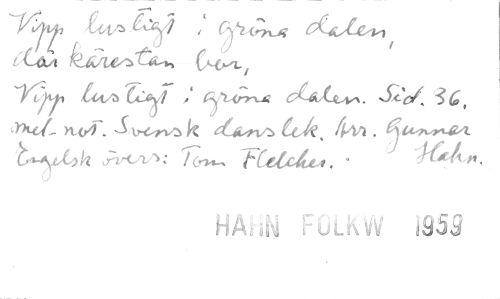 Vipp lustigt i gröna dalen,
där kärestan bor,
Vipp lustigt i gröna dalen. Sid. 36.
mel-not. Svensk danslek. Arr. Gunnar
Hahn.
Engelsk övers: Tom Fletcher.
HAHN FOLKW 1959